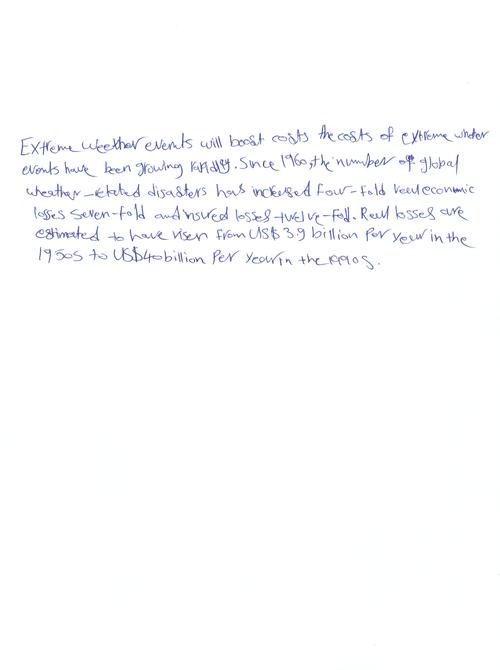 Extreme weather events will boost costs the costs of extreme winter
events have been growing rapidly. Since 1960, the number of global
weather-related disasters has incresed four-fold real economic
losses seven-fold and insured losses twelve-fold. Real losses are
estimated to have risen from US$3.9 billion Per year in the
1950s to US$40 billion Per year in the 1990s.